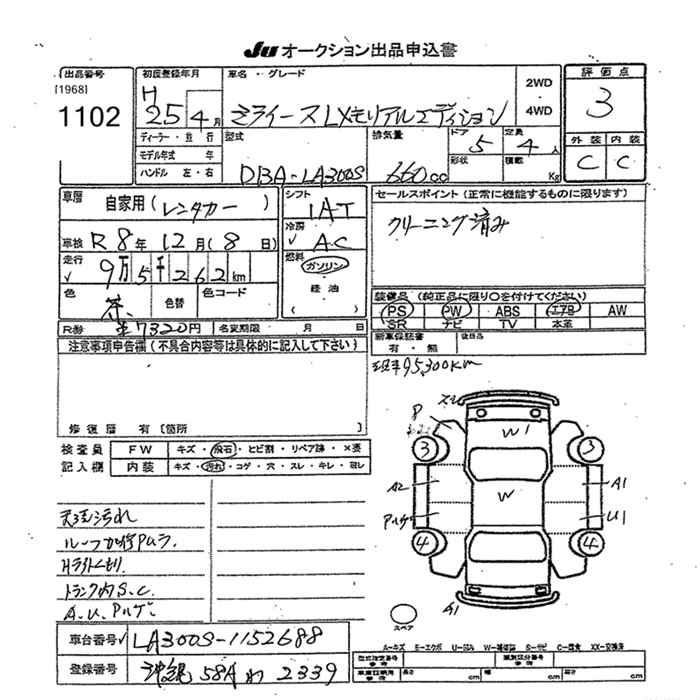 Ju オークション出品申込書
出品番号
[1968]
1102
初度登録年月
H 25年4月
車名・グレード
ミライース LXメモリアルエディション
2WD
・
4WD
評価点
3
外装 内装
C C
ディーラー・並行
モデル年式 年
ハンドル 左・右
型式
DBA-LA300S
排気量
660cc
ドア 5
形状
定員 4人
積載 Kg
車歴 自家用(レンタカー)
車検 R8年12月(8日)
走行 9万5千262km
色 茶
色替
色コード
R券 7320円
名変期限 月 日
シフト
IAT
冷房
AC
燃料
ガソリン
軽油
( )
セールスポイント(正常に機能するものに限ります)
クリーニング済み
装備品(純正品に限り○を付けてください)
PS PW ABS エアB AW
SR ナビ TV 本革
新車保証書
有・無
後日品
現車95,300km
注意事項申告欄(不具合内容等は具体的に記入して下さい)
修復歴 有[箇所 ]
検査員
記入欄
FW キズ・飛石・ヒビ割・リペア跡・×要
内装 キズ・汚れ・コゲ・穴・スレ・キレ・ヨレ
天張汚れ
Hライトくもり
トランク内S.C.
A.U.Pハゲ
スレ
P
W1
3
3
A2
W
A1
Pハゲ
U1
4
4
A1
スペア
A-キズ E-エクボ U-凹み W-補修跡 S-サビ C-腐食 XX-交換済
車台番号 LA300S-1152688
登録番号 沖縄 581 わ 2339
型式指定番号
参考
類別区分番号
参考
車庫証明用
参考
長さ cm
幅 cm
高さ cm